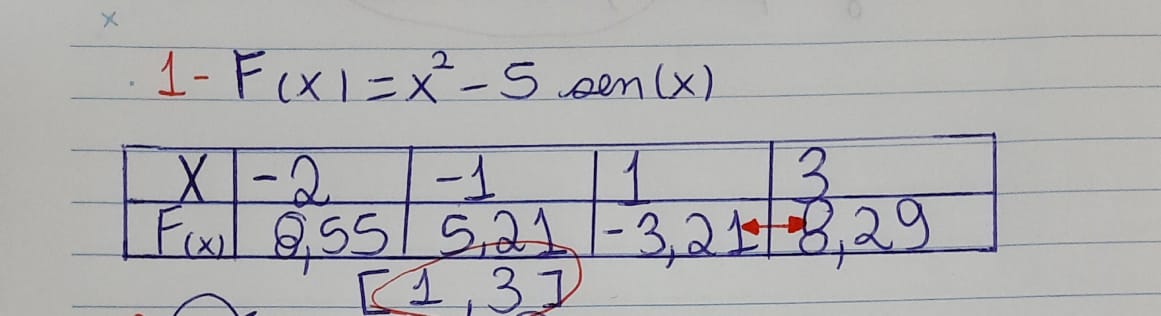 1- F(x)=x²-5 sen(x)
X -2 -1 1 3
F(x) 8,55 5,21 -3,21 8,29
[1,3]